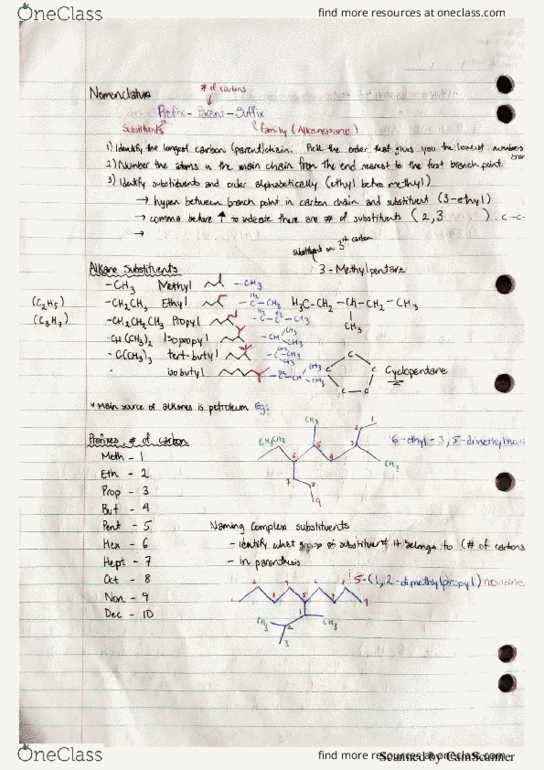 OneClass
find more resources at oneclass.com
# of carbons
Nomenclature
Prefix - Parent - Suffix
Substituents
Family (Alkane=ane)
1) Identify the longest carbon (parent) chain. Pick the order that gives you the lowest numbers
2) Number the atoms in the main chain from the end nearest to the first branch point.
3) Identify substituents and order alphabetically (ethyl before methyl)
→ hypen between branch point in carbon chain and substituent (3-ethyl)
→ comma before ↑ to indicate there are # of substituents (2,3 ) . C-C-
→
substituent on 3rd carbon
Alkane Substituents
3-Methylpentane
-CH3 Methyl -CH3
(C2H5) -CH2CH3 Ethyl H3C-CH2-CH-CH2-CH3
CH3
(C3H7) -CH2CH2CH3 Propyl
-CH(CH3)2 Isopropyl
-C(CH3)3 tert-butyl
isobutyl
Cyclopentane
* Main source of alkanes is petroleum Eg:
CH3
Prefixes, # of carbon
CH2CH3
6-ethyl-3,5-dimethylnon
CH3
Meth - 1
Eth - 2
Prop - 3
But - 4
Pent - 5
Hex - 6
Hept - 7
Oct - 8
Non - 9
Dec - 10
Naming Complex substituents
- identify what group of substituent it belongs to (# of carbons
- in parenthesis
5-(1,2-dimethylpropyl) nonane
CH3
CH3
OneClass
find more resources at oneclass.com
Scanned by CamScanner